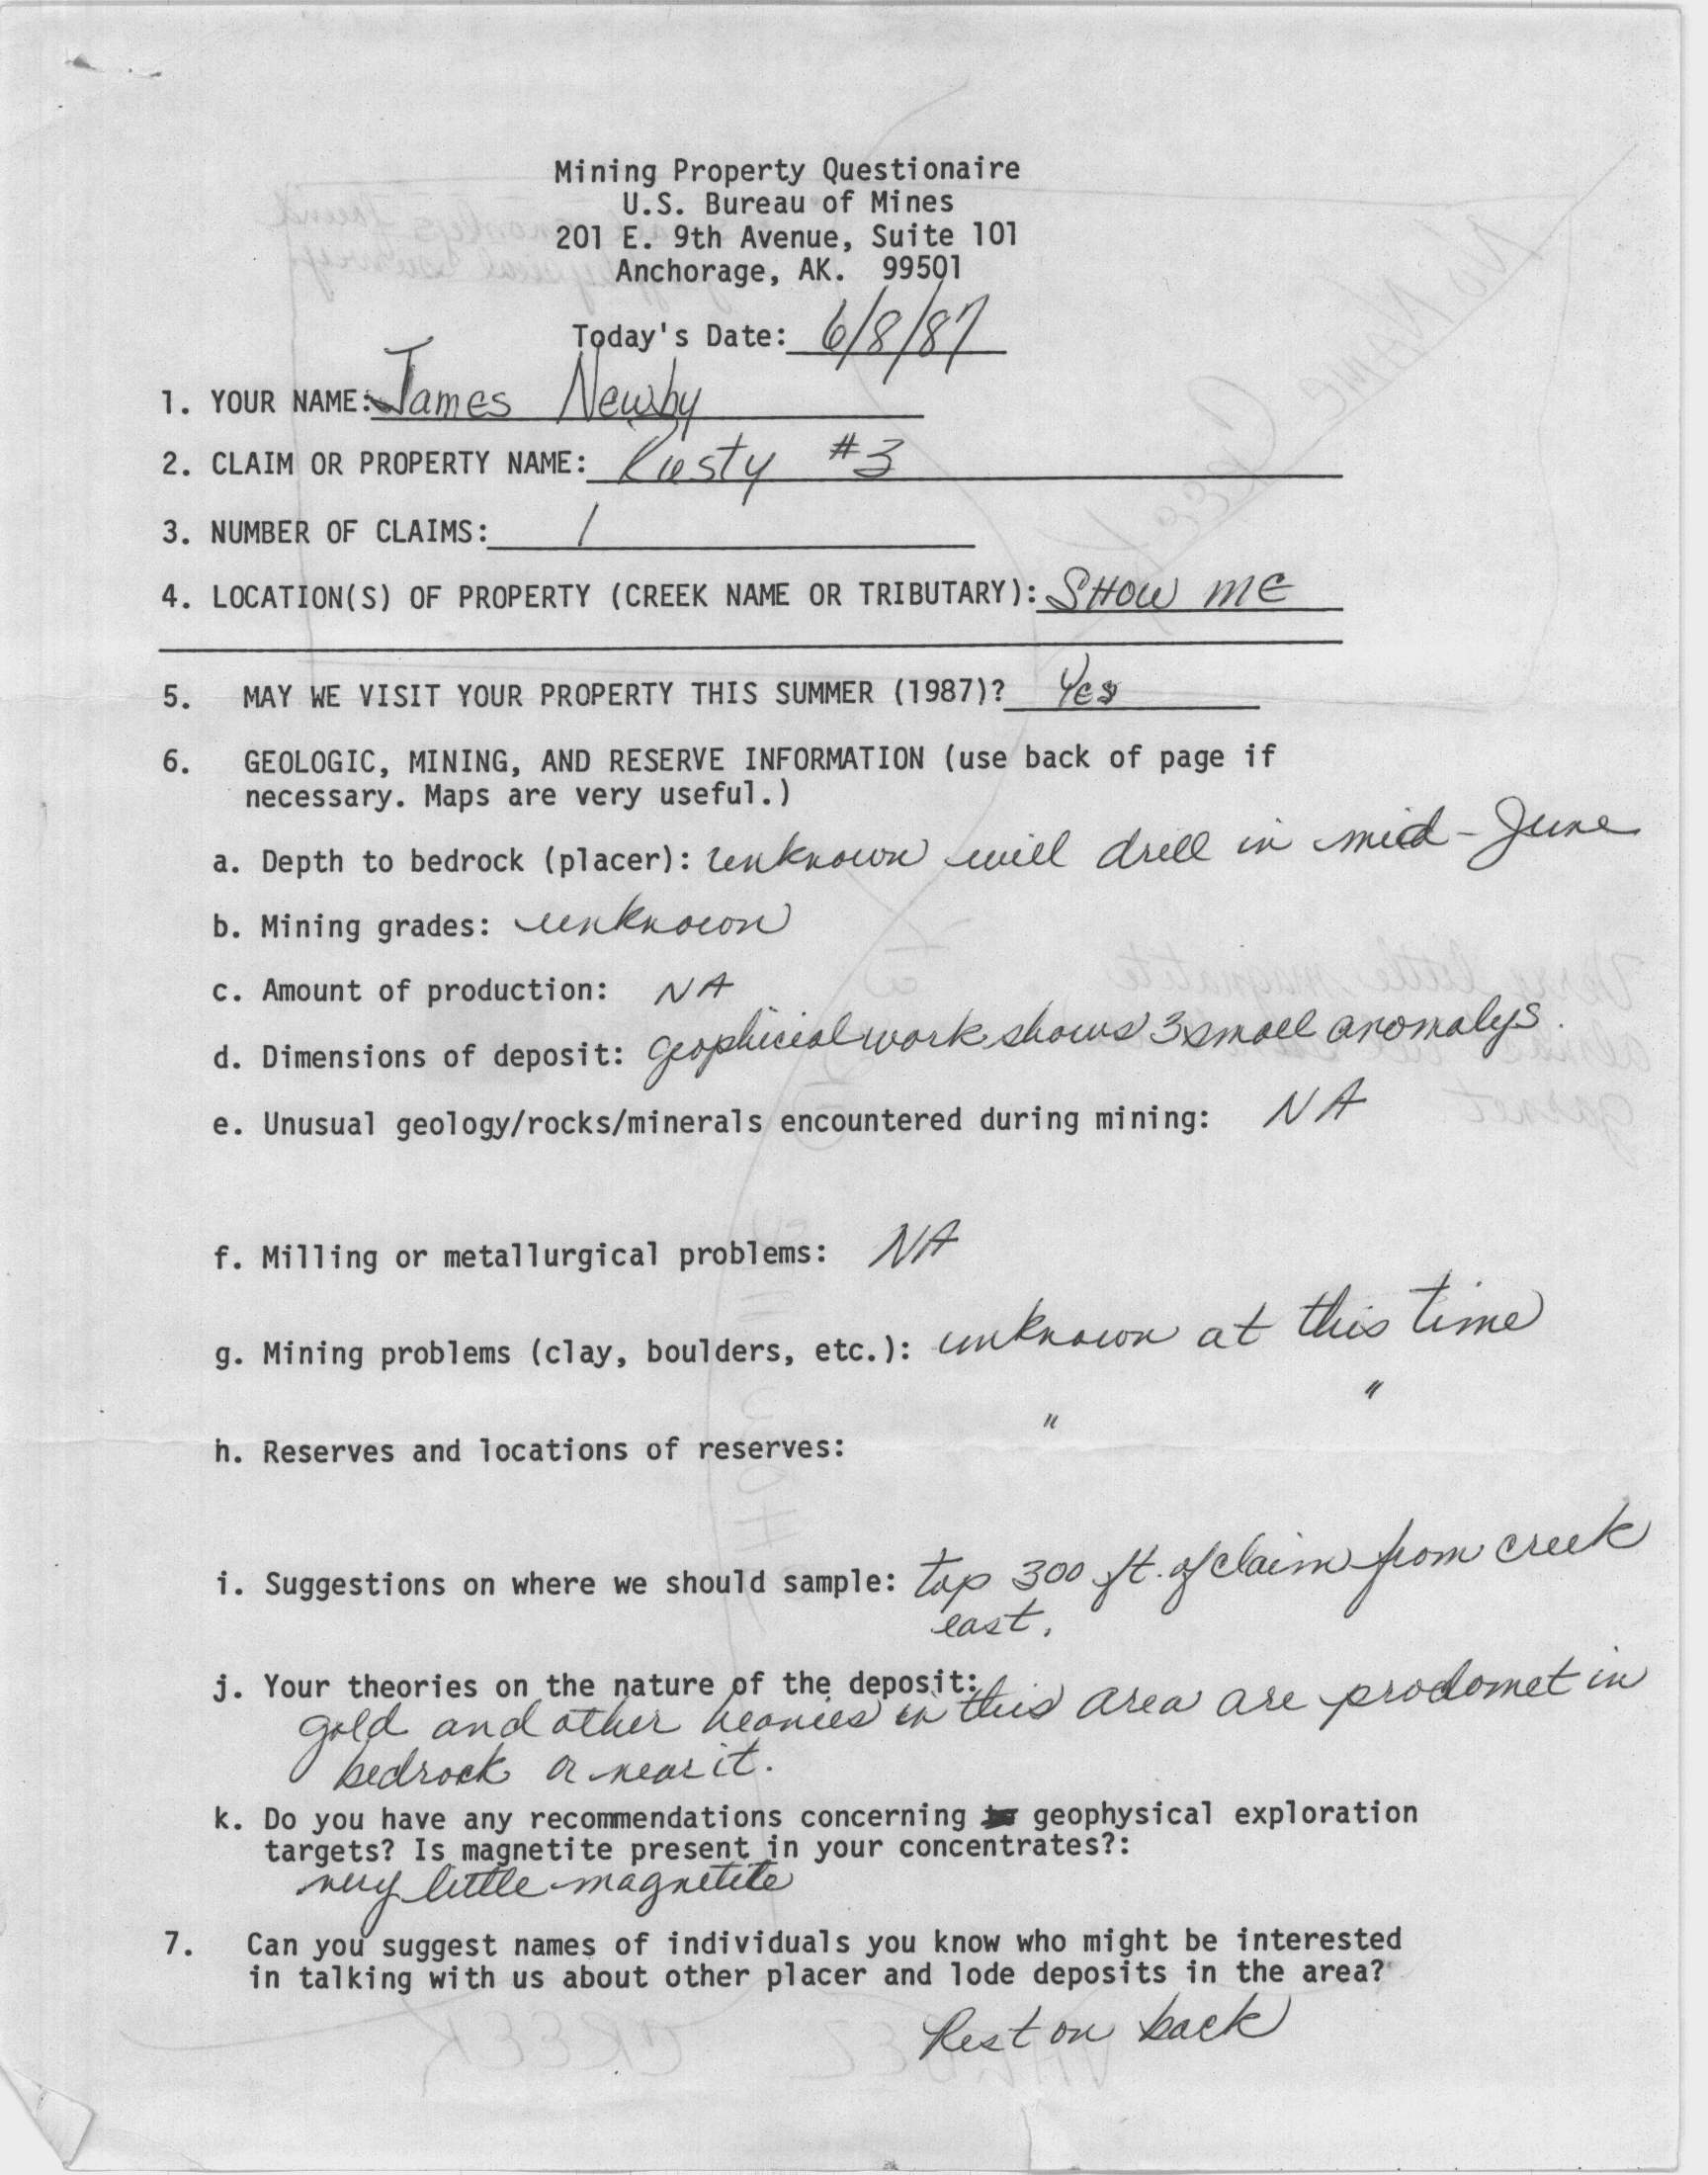 Mining Property Questionaire
U.S. Bureau of Mines
201 E. 9th Avenue, Suite 101
Anchorage, AK. 99501
Today's Date: 6/8/87
1. YOUR NAME: James Newby
2. CLAIM OR PROPERTY NAME: Rusty #3
3. NUMBER OF CLAIMS: 1
4. LOCATION(S) OF PROPERTY (CREEK NAME OR TRIBUTARY): SHOW ME
5. MAY WE VISIT YOUR PROPERTY THIS SUMMER (1987)? Yes
6. GEOLOGIC, MINING, AND RESERVE INFORMATION (use back of page if
necessary. Maps are very useful.)
a. Depth to bedrock (placer): unknown will drill in mid-June
b. Mining grades: unknown
c. Amount of production: NA
d. Dimensions of deposit: geophicial work shows 3 small anomalys.
e. Unusual geology/rocks/minerals encountered during mining: NA
f. Milling or metallurgical problems: NA
g. Mining problems (clay, boulders, etc.): unknown at this time
h. Reserves and locations of reserves: " "
i. Suggestions on where we should sample: top 300 ft. of claim from creek
east.
j. Your theories on the nature of the deposit:
gold and other heavies in this area are prodomet in
bedrock or near it.
k. Do you have any recommendations concerning geophysical exploration
targets? Is magnetite present in your concentrates?:
very little magnetite
7. Can you suggest names of individuals you know who might be interested
in talking with us about other placer and lode deposits in the area?
Rest on back